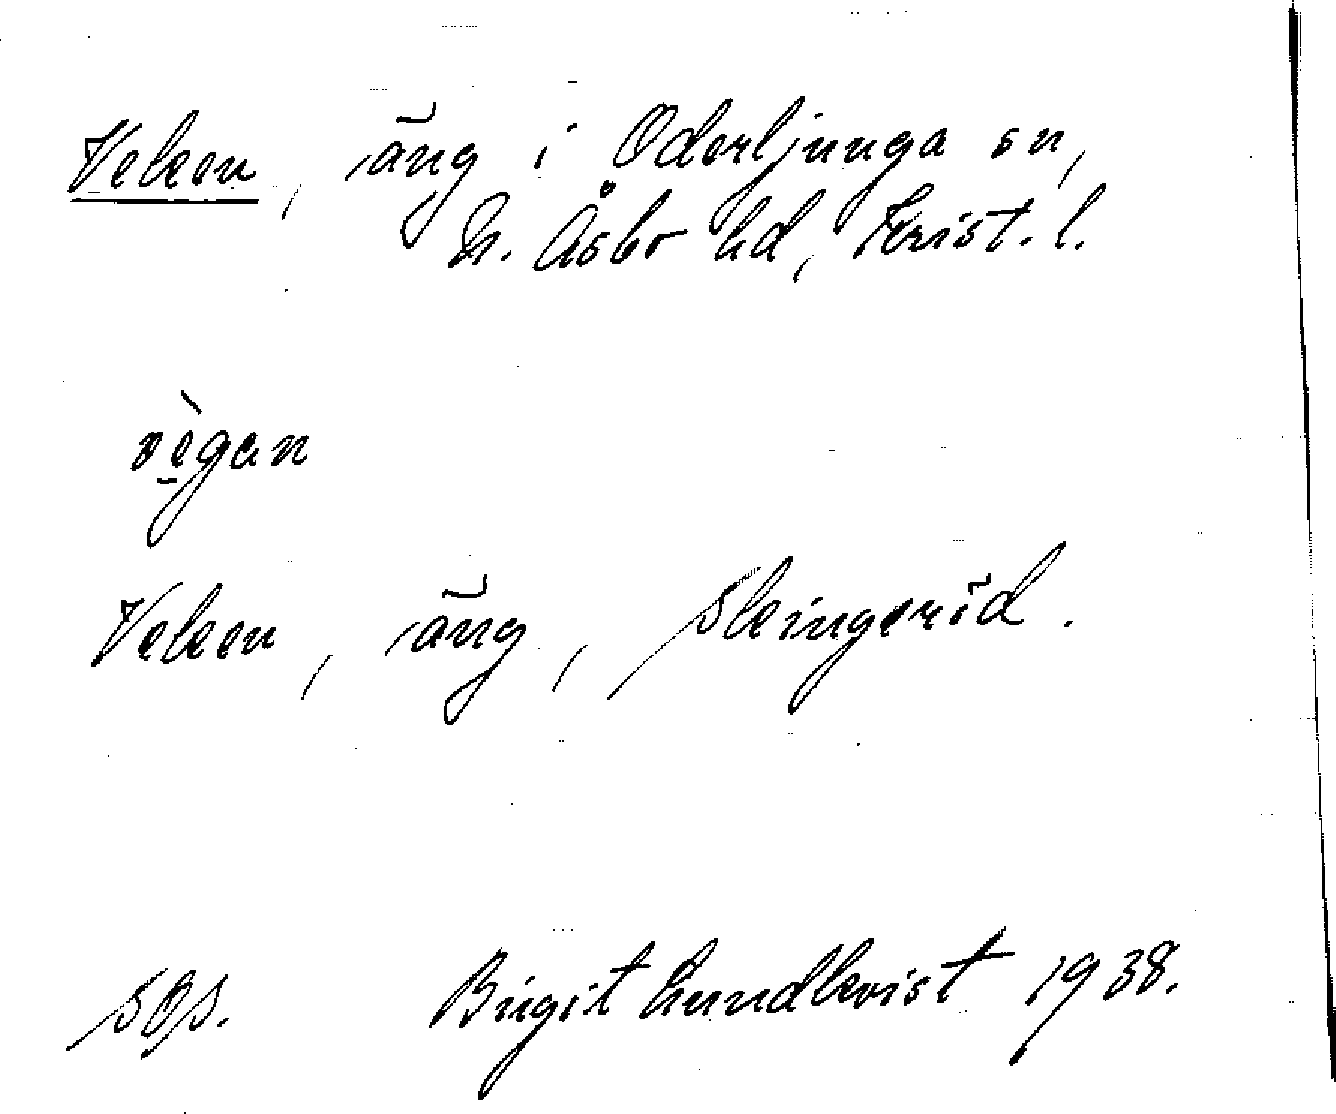 Veken, äng i Oderljunga sn,
N. Åsbo hd, Krist. l.
vègan
Veken, äng, Skingeröd.
Birgit Lundkvist 1938.